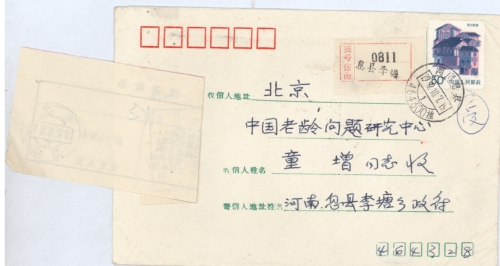 0811
息县李塘
50
中国人民邮政
收信人地址 北京
中国老龄问题研究中心
收信人姓名 童增同志收
寄信人地址姓名 河南息县李塘乡政府
464328